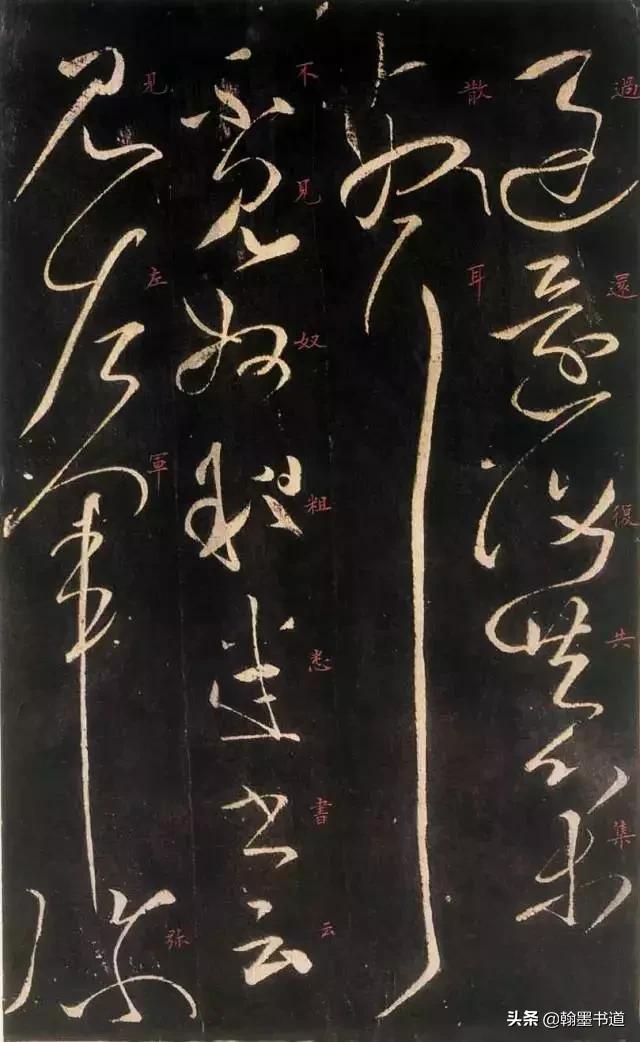 過還復共集
散耳
不見奴粗悉書云
見左軍弥
头条 @翰墨书道